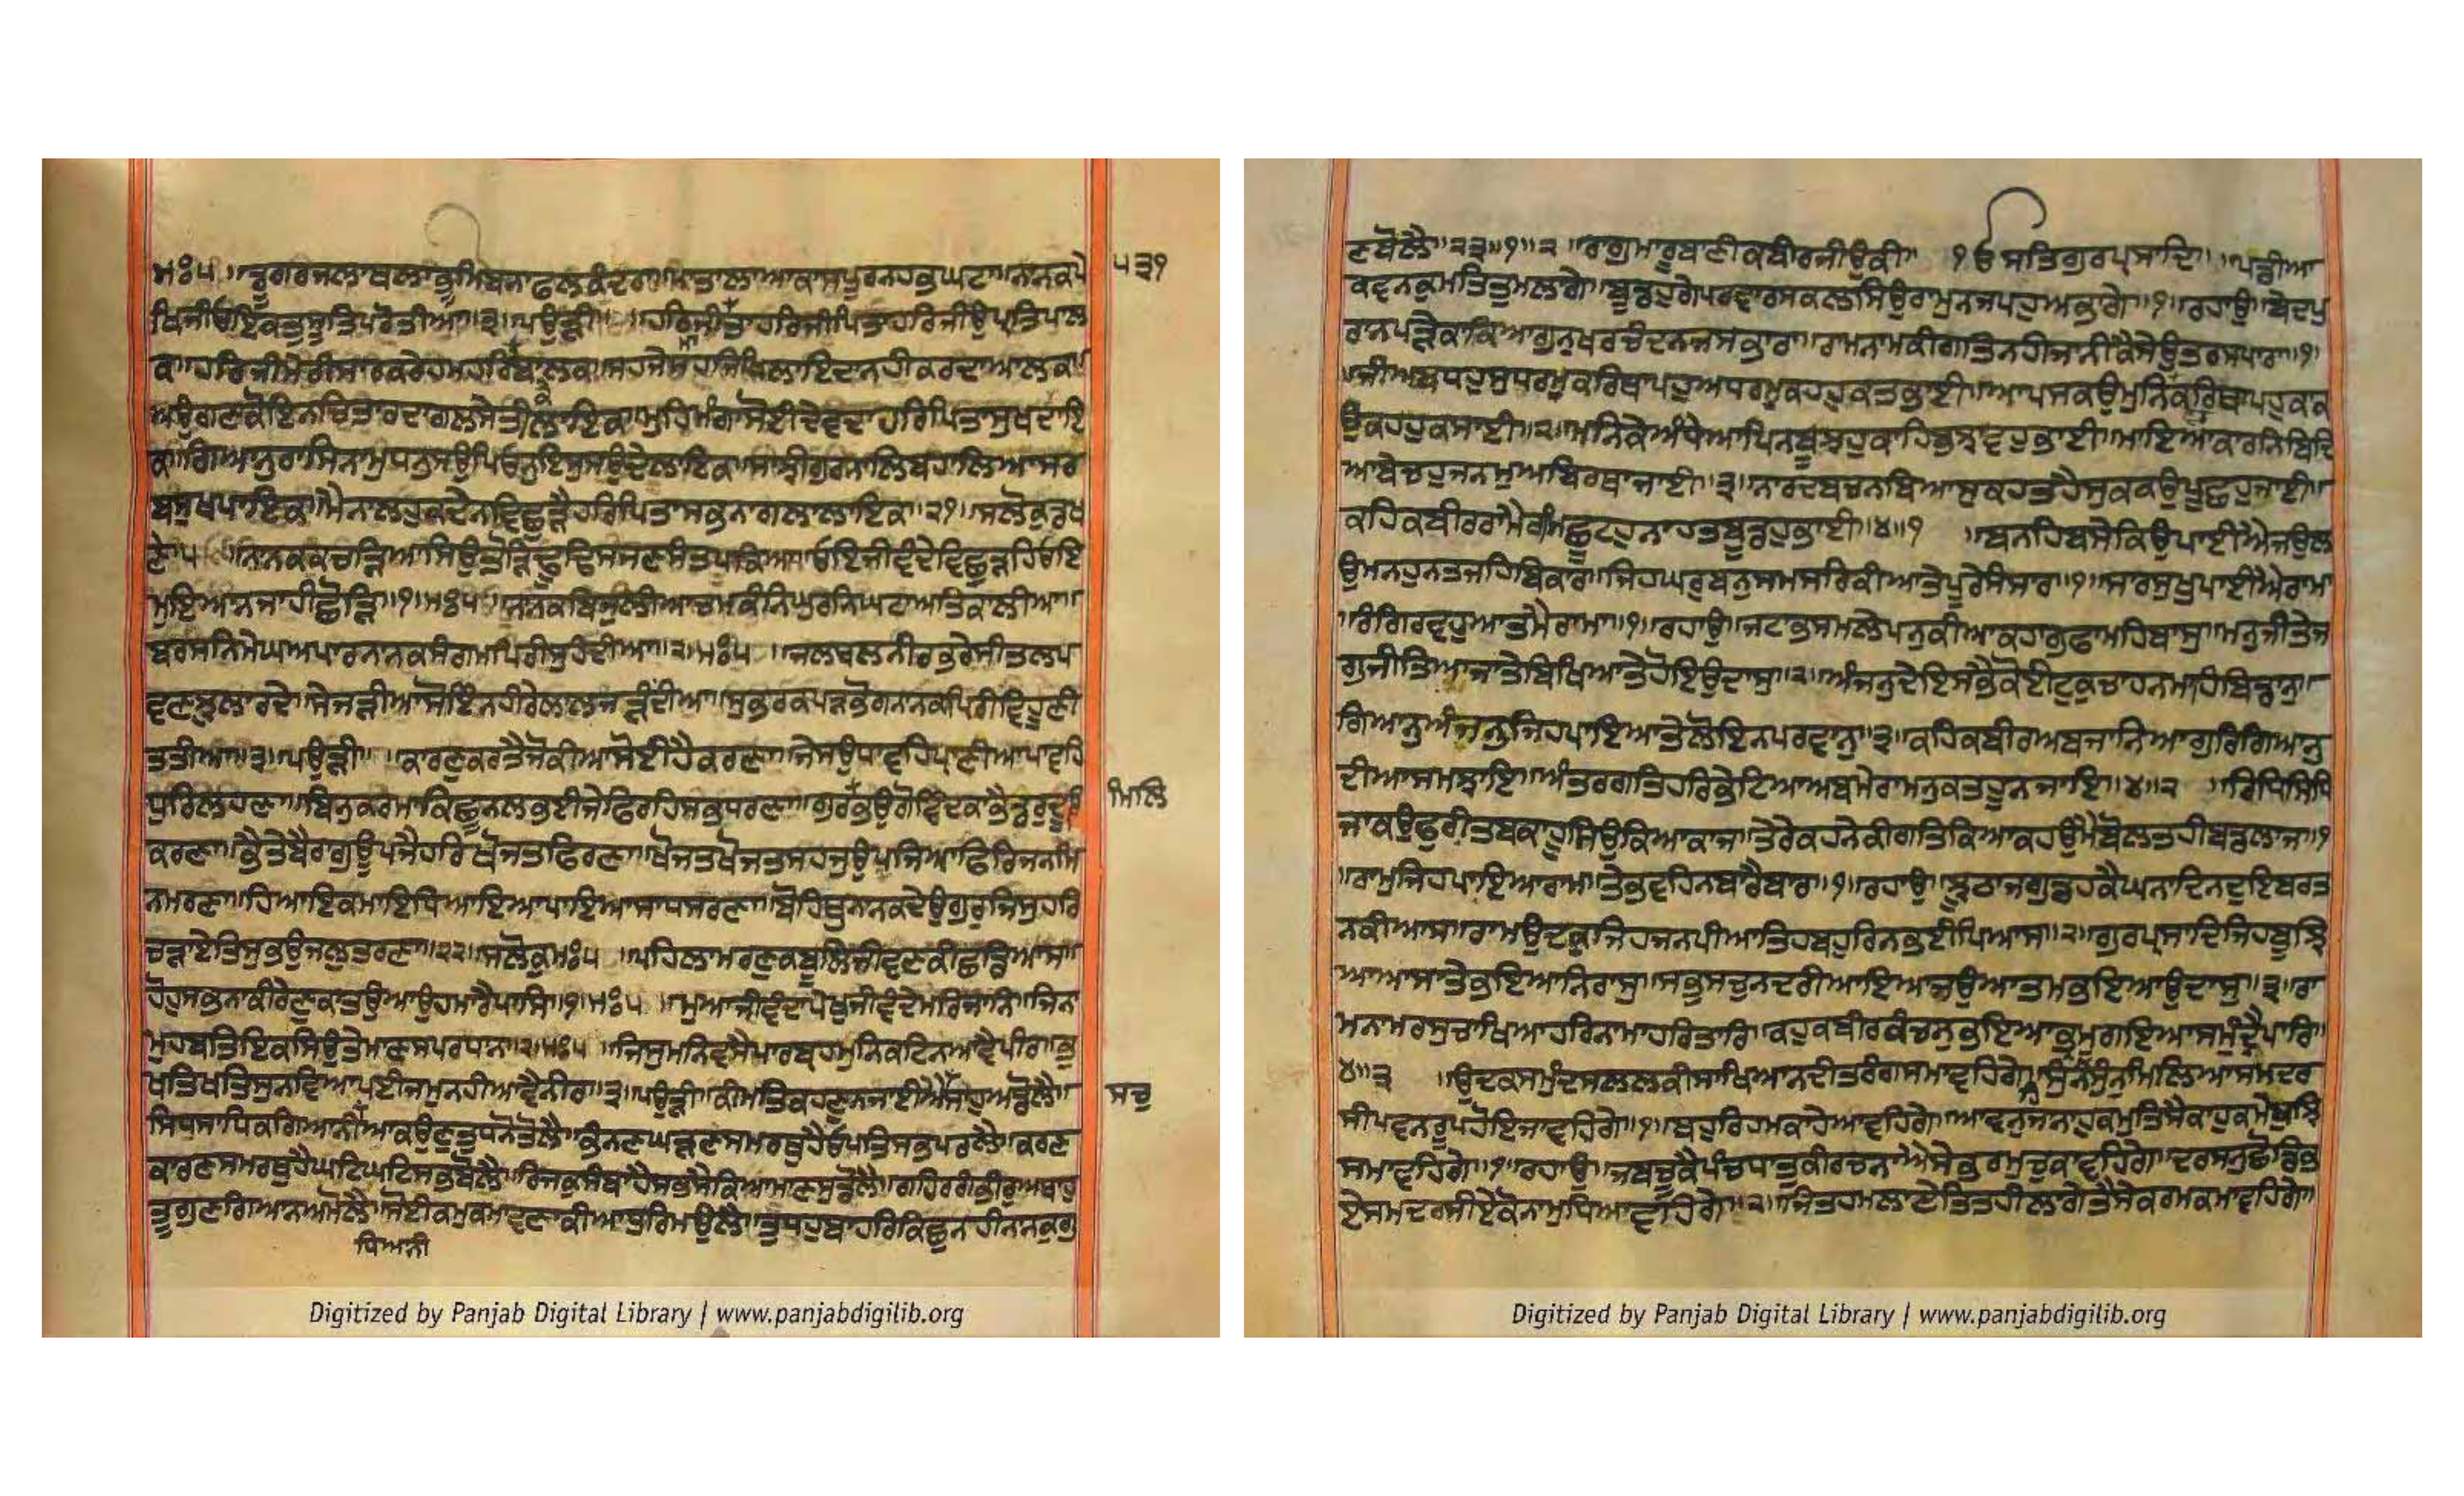 ਮਃ੫॥ਡੂਗਰਜਲਾਥਲਾਭੂਮਿਬਨਾਫਲਕੰਦਰਾ॥ਪਾਤਾਲਾਆਕਾਸਪੂਰਨਹਭਘਟਾ॥ਨਾਨਕਪੇ
੫੩੧
ਖਿਜੀਓਇਕਤੁਸੂਤਿਪਰੋਤੀਆ॥੩॥ਪਉੜੀ॥ਹਰਿਜੀਮਾਤਾਹਰਿਜੀਪਿਤਾਹਰਿਜੀਉਪ੍ਰਤਿਪਾਲ
ਕਾ॥ਹਰਿਜੀਮੇਰੀਸਾਰਕਰੇਹਮਹਰਿਕੇਬਾਲਕਾ॥ਸਹਜੇਸਹਜਿਖਿਲਾਇਦਾਨਹੀਕਰਦਾਆਲਕਾ॥
ਅਉਗਣਕੋਇਨਚਿਤਾਰਦਾਗਲਸੇਤੀਲਾਇਕਾ॥ਮੁਹਿਮੰਗਾਸੋਈਦੇਵਦਾਹਰਿਪਿਤਾਸੁਖਦਾਇ
ਕਾ॥ਗਿਆਨੁਰਾਸਿਨਾਮੁਧਨੁਸਉਪਿਓਨੁਇਸੁਸਉਦੇਲਾਇਕਾ॥ਸਾਝੀਗੁਰਨਾਲਿਬਹਾਲਿਆਸਰ
ਬਸੁਖਪਾਇਕਾ॥ਮੈਨਾਲਹੁਕਦੇਨਵਿਛੁੜੈਹਰਿਪਿਤਾਸਭਨਾਗਲਾਲਾਇਕਾ॥੨੧॥ਸਲੋਕੁਡਖ
ਣੇ੫॥ਨਾਨਕਕਚੜਿਆਸਿਉਤੋੜਿਢੂਢਿਸਜਣਸੰਤਪਕਿਆ॥ਓਇਜੀਵੰਦੇਵਿਛੁੜਹਿਓਇ
ਮੁਇਆਨਜਾਹੀਛੋੜਿ॥੧॥ਮਃ੫॥ਨਾਨਕਬਿਜੁਲੀਆਚਮਕੰਨਿਘੁਰਨਿਘਟਾਅਤਿਕਾਲੀਆ॥
ਬਰਸਨਿਮੇਘਅਪਾਰਨਾਨਕਸੰਗਮਿਪਿਰੀਸੁਹੰਦੀਆ॥੨॥ਮਃ੫॥ਜਲਥਲਨੀਰਭਰੇਸੀਤਲਪ
ਵਣਝੁਲਾਰਦੇ॥ਸੇਜੜੀਆਸੋਇੰਨਹੀਰੇਲਾਲਜੜੰਦੀਆ॥ਸੁਭਰਕਪੜਭੋਗਨਾਨਕਪਿਰੀਵਿਹੂਣੀ
ਤਤੀਆ॥੩॥ਪਉੜੀ॥ਕਾਰਣੁਕਰਤੈਜੋਕੀਆਸੋਈਹੈਕਰਣਾ॥ਜੇਸਉਧਾਵਹਿਪ੍ਰਾਣੀਆਪਾਵਹਿ
ਧੁਰਿਲਹਣਾ॥ਬਿਨੁਕਰਮਾਕਿਛੂਨਲਭਈਜੇਫਿਰਹਿਸਭਧਰਣਾ॥ਗੁਰਭਉਗੋਵਿੰਦਕਾਭੈਡਰੁਦੂਰਿ
ਮਿਲਿ
ਕਰਣਾ॥ਭੈਤੇਬੈਰਾਗੁਊਪਜੈਹਰਿਖੋਜਤਫਿਰਣਾ॥ਖੋਜਤਖੋਜਤਸਹਜੁਉਪਜਿਆਫਿਰਿਜਨਮਿ
ਨਮਰਣਾ॥ਹਿਆਇਕਮਾਇਧਿਆਇਆਪਾਇਆਸਾਧਸਰਣਾ॥ਬੋਹਿਥੁਨਾਨਕਦੇਉਗੁਰੁਜਿਸੁਹਰਿ
ਚੜਾਏਤਿਸੁਭਉਜਲੁਤਰਣਾ॥੨੨॥ਸਲੋਕੁਮਃ੫॥ਪਹਿਲਾਮਰਣੁਕਬੂਲਿਜੀਵਣਕੀਛਡਿਆਸ॥
ਹੋਹੁਸਭਨਾਕੀਰੇਣੁਕਾਤਉਆਉਹਮਾਰੈਪਾਸਿ॥੧॥ਮਃ੫॥ਮੁਆਜੀਵੰਦਾਪੇਖੁਜੀਵੰਦੇਮਰਿਜਾਨਿ॥ਜਿਨਾ
ਮੁਹਬਤਿਇਕਸਿਉਤੇਮਾਣਸਪਰਧਾਨ॥੨॥ਮਃ੫॥ਜਿਸੁਮਨਿਵਸੈਪਾਰਬ੍ਰਹਮੁਨਿਕਟਿਨਆਵੈਪੀਰ॥ਭੁ
ਖਤਿਖਤਿਸੁਨਵਿਆਪਈਜਮੁਨਹੀਆਵੈਨੀਰ॥੩॥ਪਉੜੀ॥ਕੀਮਤਿਕਹਣੁਨਜਾਈਐਸਾਹਅਡੋਲੈ॥
ਸਚੁ
ਸਿਧਸਾਧਿਕਗਿਆਨੀਆਕਉਣੁਤੁਧਨੋਤੋਲੈ॥ਭੰਨਣਘੜਣਸਮਰਥੁਹੈਓਪਤਿਸਭਪਰਲੈ॥ਕਰਣ
ਕਾਰਣਸਮਰਥੁਹੈਘਟਿਘਟਿਸਭਬੋਲੈ॥ਰਿਜਕੁਸੰਬਾਹੇਸਭਸੈਕਿਆਮਾਣਸੁਡੋਲੈ॥ਗਹਿਰਗੰਭੀਰੁਅਥਾਹੁ
ਤੂਗੁਣਗਿਆਨਅਮੋਲੈ॥ਸੋਈਕਮੁਕਮਾਵਣਾਕੀਆਧੁਰਿਮਉਲੈ॥ਤੁਧਹੁਬਾਹਰਿਕਿਛੁਨਹੀਨਾਨਕੁਗੁ
ਧਿਆਨੀ
Digitized by Panjab Digital Library | www.panjabdigilib.org
ਣਬੋਲੈ॥੨੩॥੧॥੨॥ਰਾਗੁਮਾਰੂਬਾਣੀਕਬੀਰਜੀਉਕੀ॥ ੴਸਤਿਗੁਰਪ੍ਰਸਾਦਿ॥ਪਡੀਆ
ਕਵਨਕੁਮਤਿਤੁਮਲਾਗੇ॥ਬੂਡਹੁਗੇਪਰਵਾਰਸਕਲਸਿਉਰਾਮੁਨਜਪਹੁਅਭਾਗੇ॥੧॥ਰਹਾਉ॥ਬੇਦਪੁ
ਰਾਨਪੜੇਕਾਕਿਆਗੁਨੁਖਰਚੰਦਨਜਸਭਾਰਾ॥ਰਾਮਨਾਮਕੀਗਤਿਨਹੀਜਾਨੀਕੈਸੇਉਤਰਸਿਪਾਰਾ॥੧॥
॥ਜੀਅਬਧਹੁਸੁਧਰਮੁਕਰਿਥਾਪਹੁਅਧਰਮੁਕਹਹੁਕਤਭਾਈ॥ਆਪਸਕਉਮੁਨਿਵਰਕਰਿਥਾਪਹੁਕਾਕ
ਉਕਹਹੁਕਸਾਈ॥੨॥ਮਨਿਕੇਅੰਧੇਆਪਿਨਬੂਝਹੁਕਾਹਿਬੁਝਾਵਹੁਭਾਈ॥ਮਾਇਆਕਾਰਨਿਬਿਦਿ
ਆਬੇਚਹੁਜਨਮੁਅਬਿਰਥਾਜਾਈ॥੩॥ਨਾਰਦਬਚਨਬਿਆਸੁਕਹਤਹੈਸੁਕਕਉਪੂਛਹੁਜਾਈ॥
ਕਹਿਕਬੀਰਰਾਮੈਰਮਿਛੂਟਹੁਨਾਹਤਬੂਡਹੁਭਾਈ॥੪॥੧॥ਬਨਹਿਬਸੇਕਿਉਪਾਈਐਜਉਲ
ਉਮਨਹੁਨਤਜਹਿਬਿਕਾਰ॥ਜਿਹਘਰੁਬਨੁਸਮਸਰਿਕੀਆਤੇਪੂਰੇਸੰਸਾਰ॥੧॥ਸਾਰਸੁਖੁਪਾਈਐਰਾਮਾ
॥ਰੰਗਿਰਵਹੁਆਤਮੈਰਾਮ॥੧॥ਰਹਾਉ॥ਜਟਾਭਸਮਲੇਪਨੁਕੀਆਕਹਾਗੁਫਾਮਹਿਬਾਸੁ॥ਮਨੁਜੀਤੇਜ
ਗੁਜੀਤਿਆਜਾਤੇਬਿਖਿਆਤੇਹੋਇਉਦਾਸੁ॥੨॥ਅੰਜਨੁਦੇਇਸਭੈਕੋਈਟੁਕੁਚਾਹਨਮਾਹਿਬਿਡਾਨੁ॥
ਗਿਆਨੁਅੰਜਨੁਜਿਹਪਾਇਆਤੇਲੋਇਨਪਰਵਾਨੁ॥੩॥ਕਹਿਕਬੀਰਅਬਜਾਨਿਆਗੁਰਿਗਿਆਨੁ
ਦੀਆਸਮਝਾਇ॥ਅੰਤਰਗਤਿਹਰਿਭੇਟਿਆਅਬਮੇਰਾਮਨੁਕਤਹੂਨਜਾਇ॥੪॥੨॥ਰਿਧਿਸਿਧਿ
ਜਾਕਉਫੁਰੀਤਬਕਾਹੂਸਿਉਕਿਆਕਾਜ॥ਤੇਰੇਕਹਨੇਕੀਗਤਿਕਿਆਕਹਉਮੈਬੋਲਤਹੀਬਡਲਾਜ॥੧
॥ਰਾਮੁਜਿਹਪਾਇਆਰਾਮ॥ਤੇਭਵਹਿਨਬਾਰੈਬਾਰ॥੧॥ਰਹਾਉ॥ਝੂਠਾਜਗੁਡਹਕੈਘਨਾਦਿਨਦੁਇਬਰਤ
ਨਕੀਆਸ॥ਰਾਮਉਦਕੁਜਿਹਜਨਪੀਆਤਿਹਬਹੁਰਿਨਭਈਪਿਆਸ॥੨॥ਗੁਰਪ੍ਰਸਾਦਿਜਿਹਬੂਝਿ
ਆਆਸਾਤੇਭਇਆਨਿਰਾਸੁ॥ਸਭੁਸਚੁਨਦਰੀਆਇਆਜਉਆਤਮਭਇਆਉਦਾਸੁ॥੩॥ਰਾ
ਮਨਾਮਰਸੁਚਾਖਿਆਹਰਿਨਾਮਾਹਰਿਤਾਰਿ॥ਕਹੁਕਬੀਰਕੰਚਨੁਭਇਆਭ੍ਰਮੁਗਇਆਸਮੁੰਦ੍ਰੈਪਾਰਿ॥
੪॥੩॥ਉਦਕਸਮੁੰਦਸਲਲਕੀਸਾਖਿਆਨਦੀਤਰੰਗਸਮਾਵਹਿਗੇ॥ਸੁੰਨਹਿਸੁੰਨੁਮਿਲਿਆਸਮਦਰ
ਸੀਪਵਨਰੂਪਹੋਇਜਾਵਹਿਗੇ॥੧॥ਬਹੁਰਿਹਮਕਾਹੇਆਵਹਿਗੇ॥ਆਵਨਜਾਨਾਹੁਕਮੁਤਿਸੈਕਾਹੁਕਮੈਬੁਝਿ
ਸਮਾਵਹਿਗੇ॥੧॥ਰਹਾਉ॥ਜਬਚੂਕੈਪੰਚਧਾਤੁਕੀਰਚਨਾਐਸੇਭਰਮੁਚੁਕਾਵਹਿਗੇ॥ਦਰਸਨੁਛੋਡਿਭ
ਏਸਮਦਰਸੀਏਕੋਨਾਮੁਧਿਆਵਹਿਗੇ॥੨॥ਜਿਤਹਮਲਾਏਤਿਤਹੀਲਾਗੇਤੈਸੇਕਰਮਕਮਾਵਹਿਗੇ॥
Digitized by Panjab Digital Library | www.panjabdigilib.org